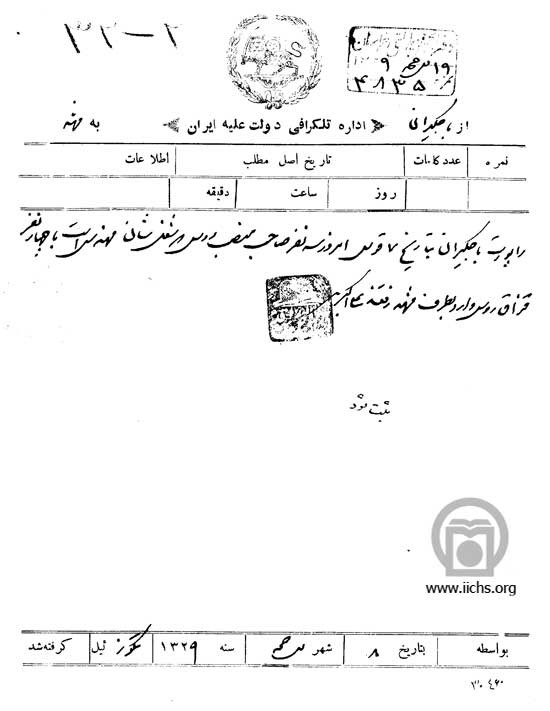 ۳۳-۲
۱۹
۹
۴۸۳۵
از باجگیران اداره تلگرافی دولت علیه ایران به مشهد
نمره عدد کلمات تاریخ اصل مطلب اطلاعات
روز ساعت دقیقه
راپورت باجگیران بتاریخ ۷ قوس امروز سه نفر صاحب منصب روس شغلشان مهندس است با چهار نفر
قزاق روس وارد بطرف مشهد رفتند علی اکبر
ثبت شود
www.iichs.org
بواسطه بتاریخ ۸ شهر ذی حجه سنه ۱۳۲۹ تنگوز ئیل گرفته شد